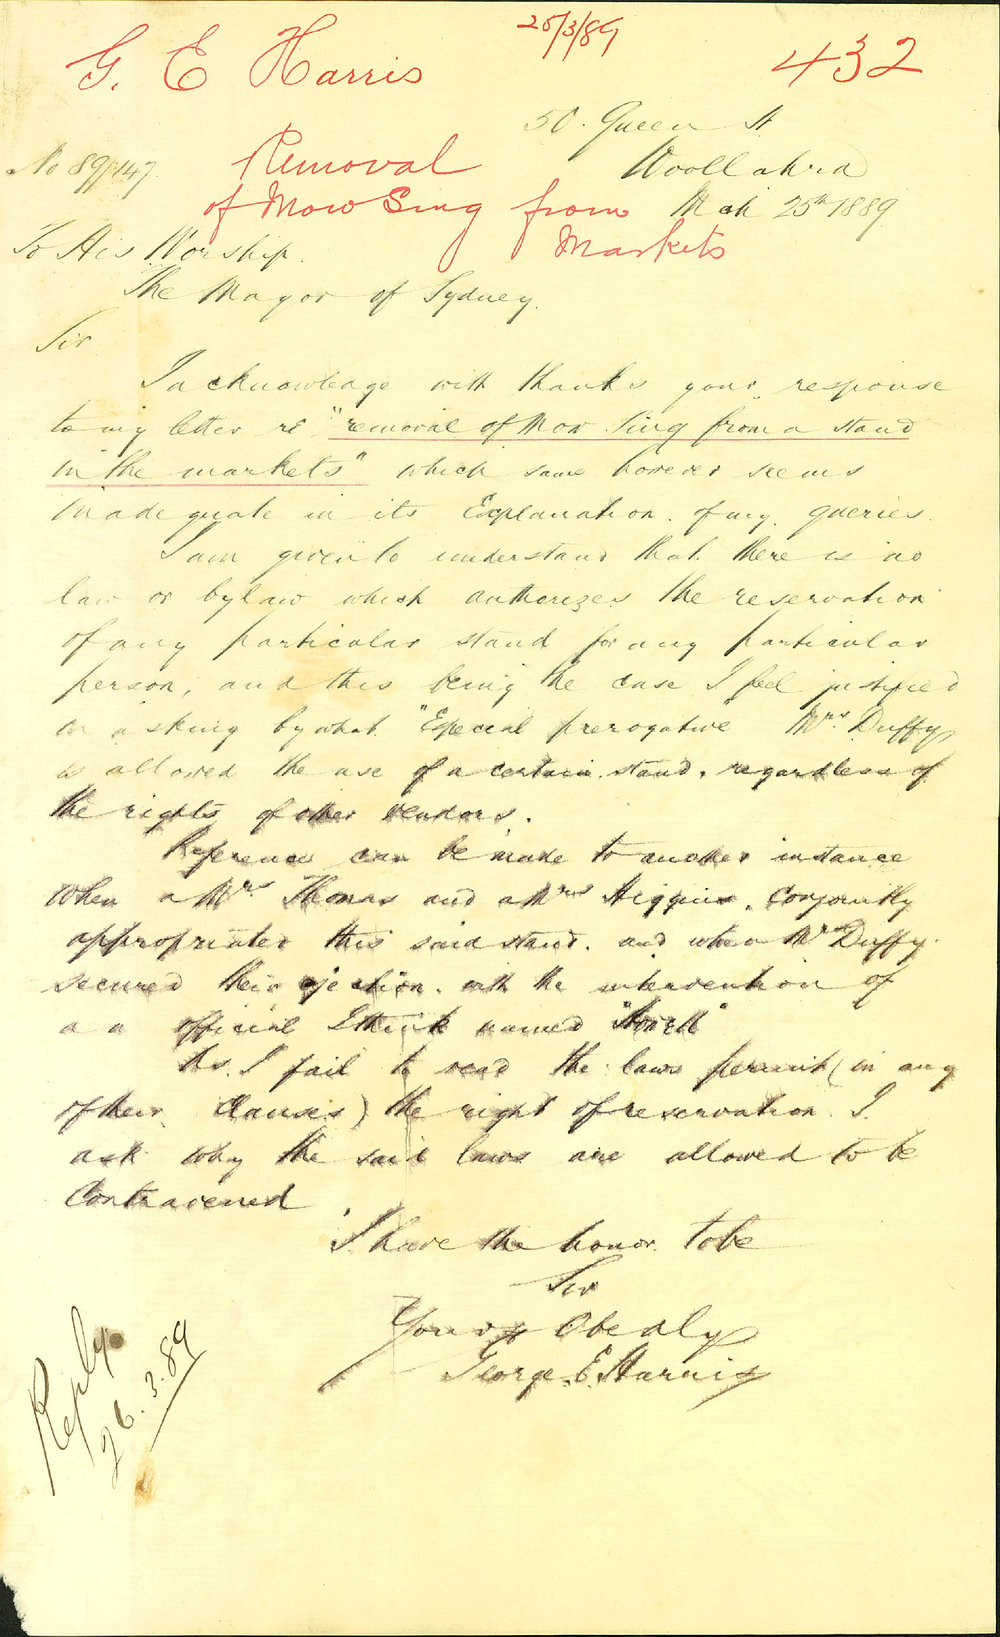 25/3/89
G. E Harris
432
50. Queen St
No 89/147.
Removal
Woollahra
of Mow Sing from
Mch 25th 1889
Markets
To His Worship.
The Mayor of Sydney.
Sir
I acknowledge with thanks your response
to my letter re "removal of Mow Sing from a stand
in the markets" which same however seems
inadequate in its Explanation. of my queries.
I am given to understand that there is no
law or bylaw which authorizes the reservation
of any particular stand for any particular
person, and this being the case I feel justified
in asking by what "Especial prerogative" Mrs Duffy
is allowed the use of a certain stand. regardless of
the rights of other vendors.
Reference can be made to another instance
when a Mrs Thomas and a Mrs Higgins. Conjointly
appropriated this said stand. and when Mrs Duffy.
secured their ejection. with the intervention of
a a official I think named
As I fail to read the laws permit (in any
of their Clauses) the right of reservation. I
ask why the said laws are allowed to be
Contravened.
I have the honor. to be
Sir
Yours Obedly
George. E. Harris
Reply
26.3.89